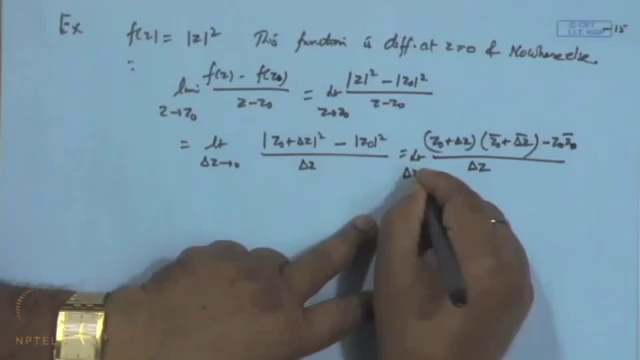 Ex f(z) = |z|² This function is diff. at z=0 & Nowhere else.
∴ lim z→z₀ (f(z) - f(z₀))/(z-z₀) = lt z→z₀ (|z|² - |z₀|²)/(z-z₀)
= lt Δz→0 (|z₀+Δz|² - |z₀|²)/Δz = lt Δz (z₀+Δz)(z̄₀+Δ̅z̅) - z₀z̄₀/Δz
NPTEL